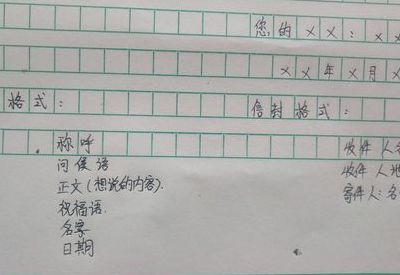 您的××：××
××年×月×
格式：
信封格式：
称呼
问侯语
正文（想说的内容）.
祝福语.
名字
日期
收件人名
收件人地
寄件人：名